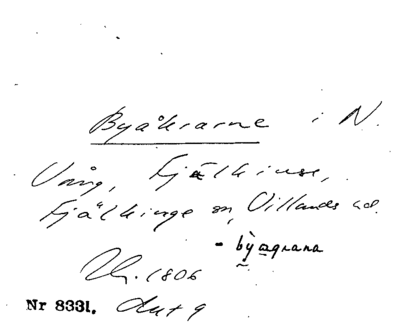 Byåkrarne i N.
Vång, Fjälkinge,
Fjälkinge sn, Villands hd.
- byagrana
1806
Nr 8331.